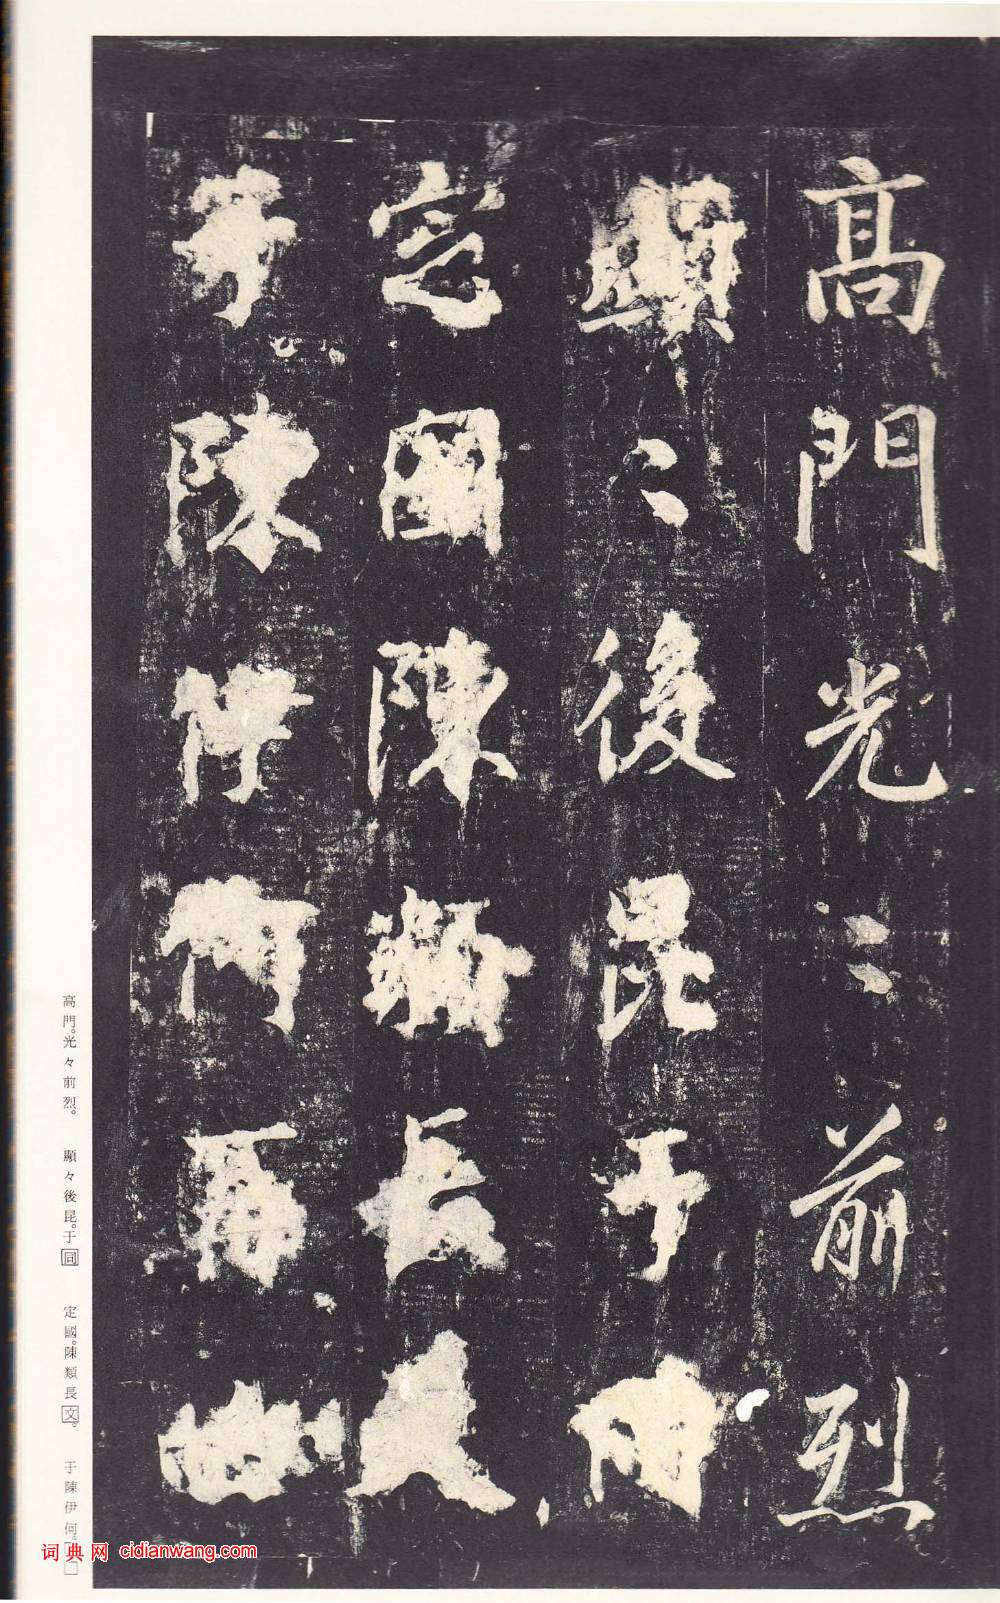 高門光〻前烈
顯〻後昆于同
定國陳類長文
于陳伊何
高門。光々前烈。　顯々後昆。于同　定國。陳類長文。　于陳伊何。□
词典网 cidianwang.com